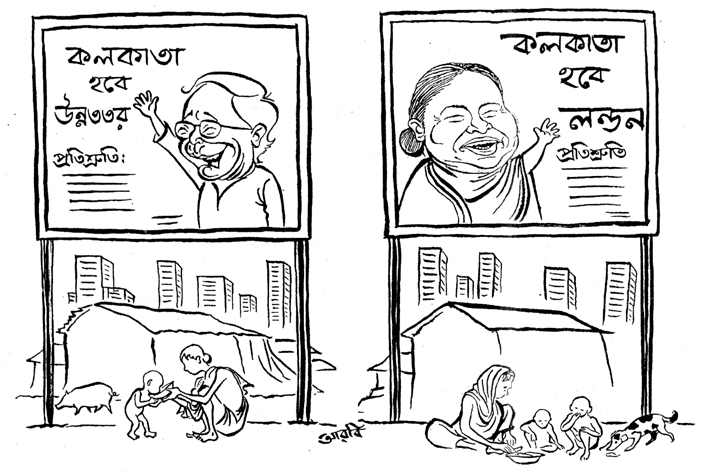 কলকাতা
হবে
উন্নততর
প্রতিশ্রুতি:
কলকাতা
হবে
লন্ডন
প্রতিশ্রুতি